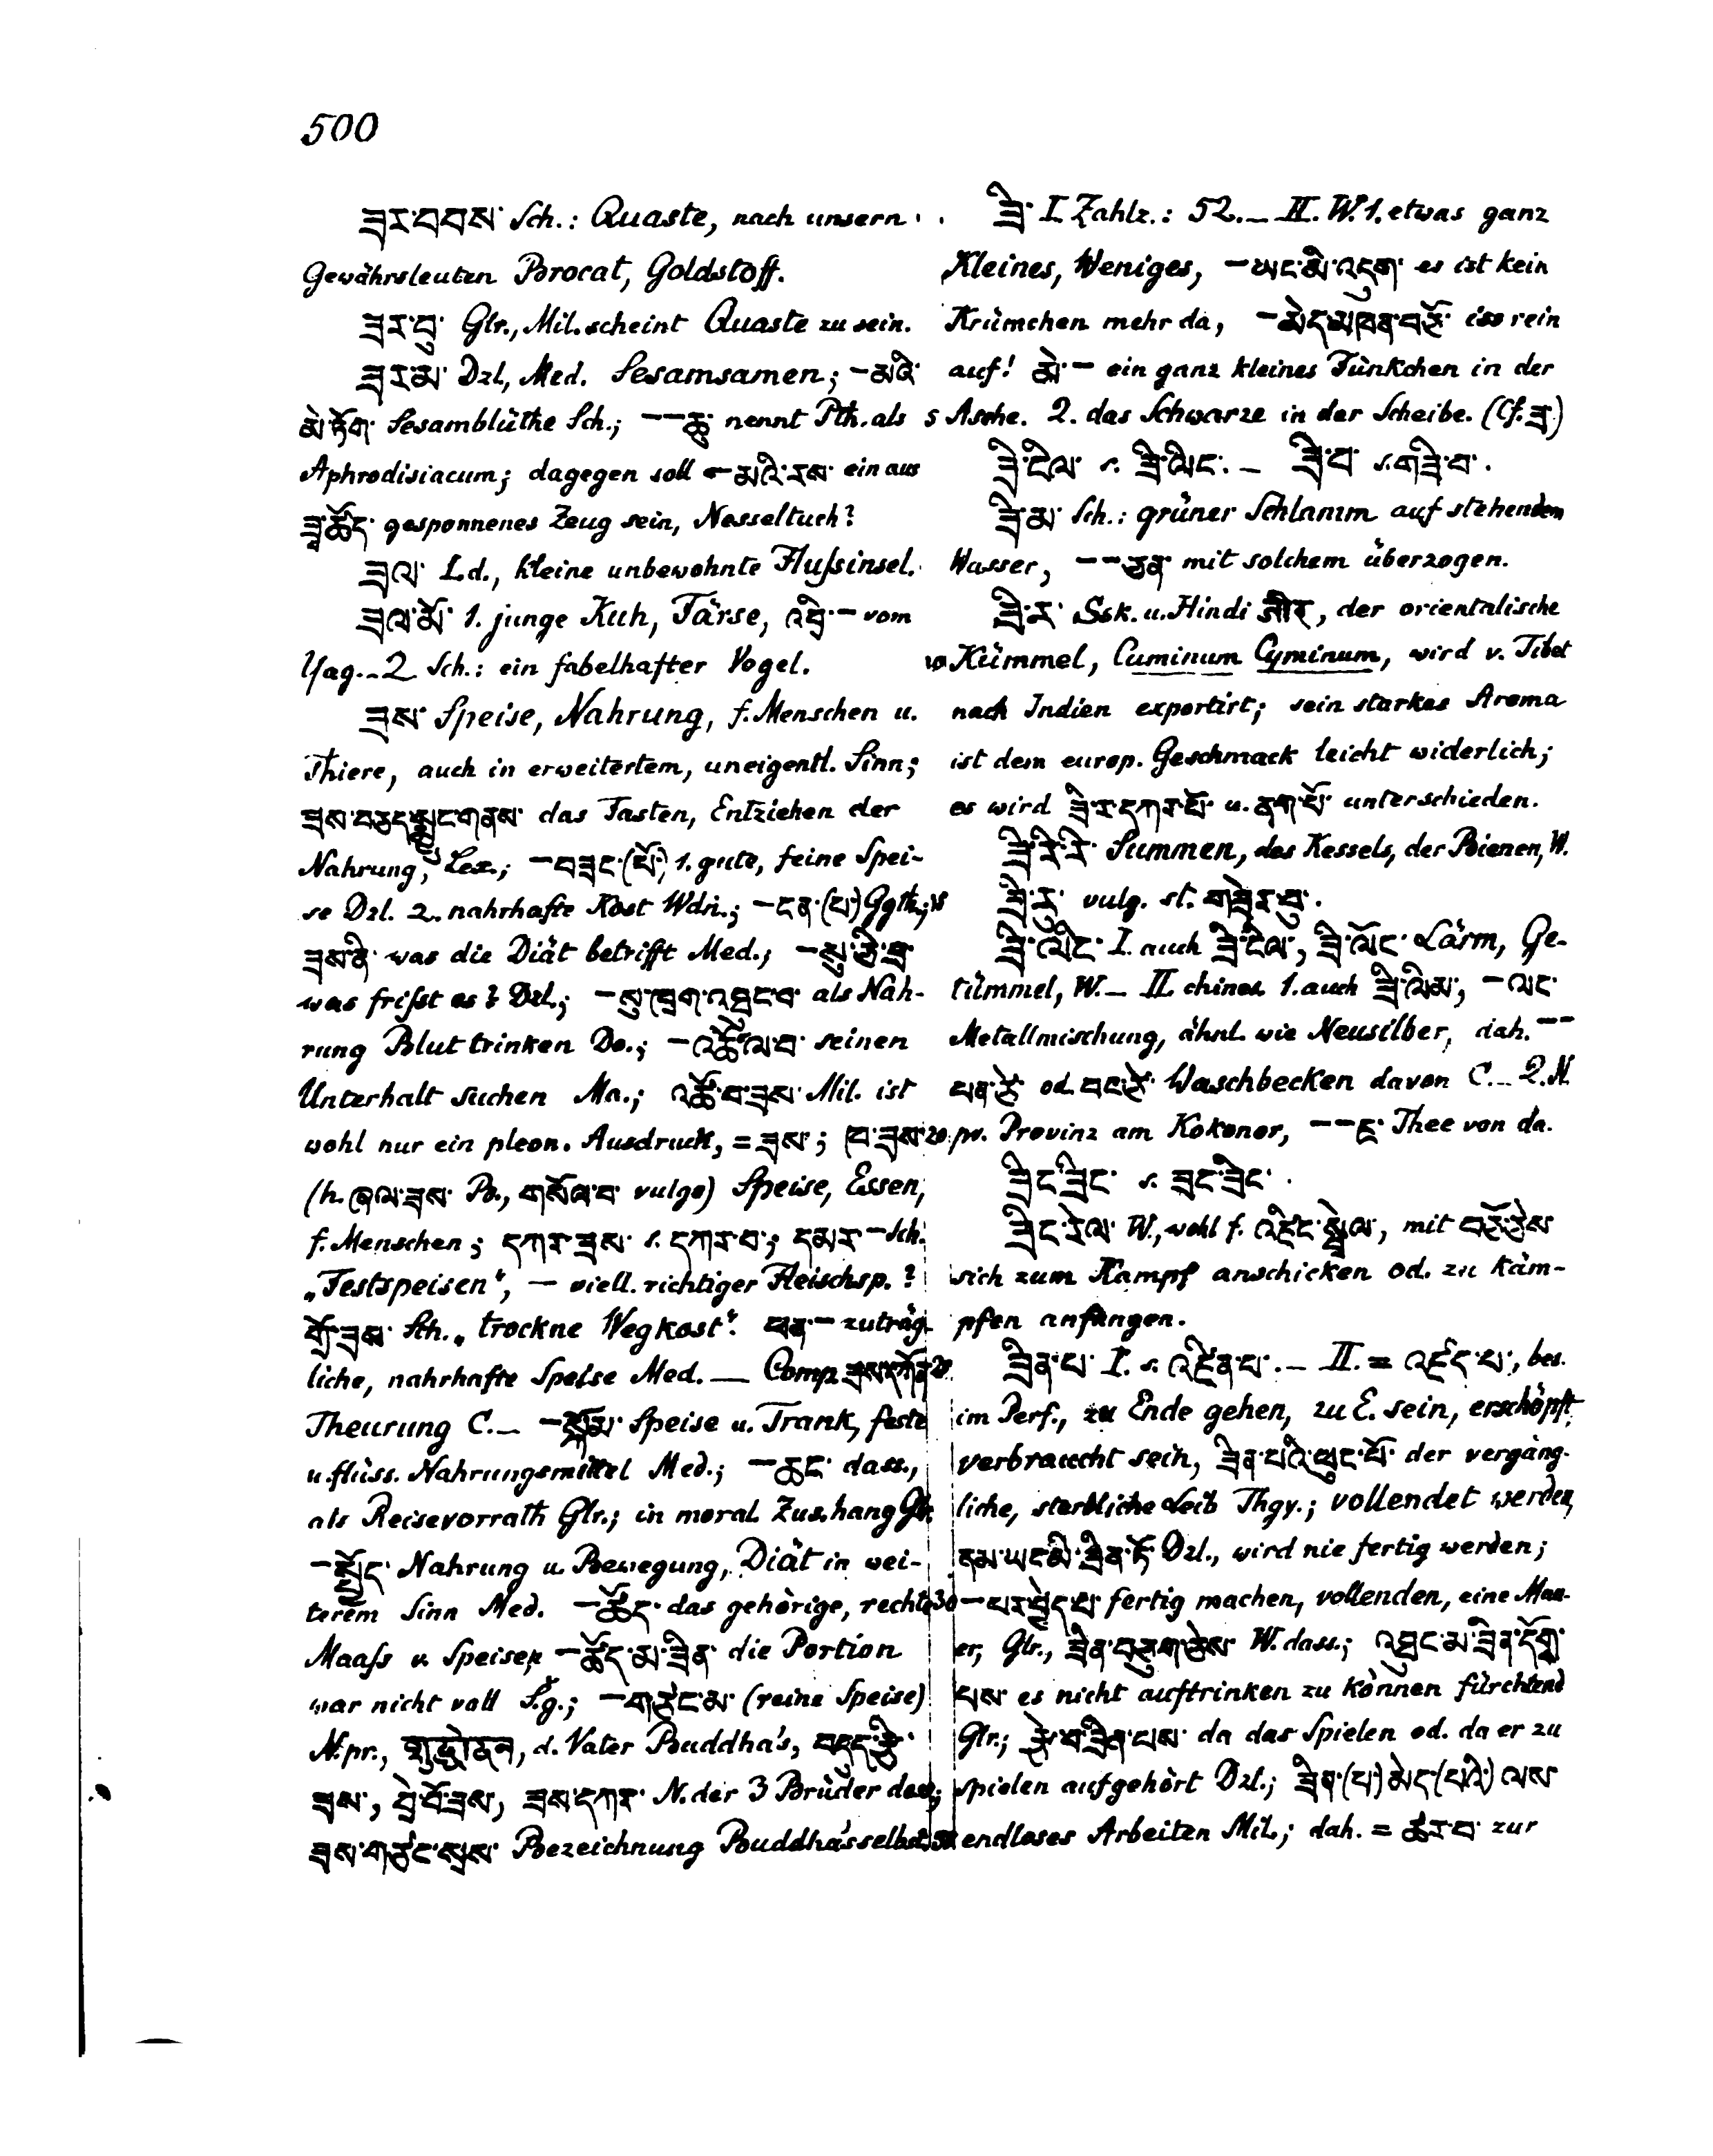 500
ཟར་བབས་ Sch.: Quaste, nach unsern
Gewährsleuten Brocat, Goldstoff.
ཟར་བུ་ Glr., Mil. scheint Quaste zu sein.
ཟར་མ་ Dzl., Med. Sesamsamen; – མའི་
མེ་ཏོག་ Sesamblüthe Sch.; – – ཆུ་ nennt Pth. als
Aphrodisiacum; dagegen soll – མའི་རས་ ein aus
ཟྭ་ཚོད་ gesponnenes Zeug sein, Nesseltuch?
ཟལ་ Ld., kleine unbewohnte Flußinsel.
ཟལ་མོ་ 1. junge Kuh, Färse, འབྲི་ – vom
Yag. – 2 Sch.: ein fabelhafter Vogel.
ཟས་ Speise, Nahrung, f. Menschen u.
Thiere, auch in erweitertem, uneigentl. Sinn;
ཟས་བཅད་སྨྱུང་གནས་ das Fasten, Entziehen der
Nahrung, Lex.; – བཟང་(པོ་) 1. gute, feine Spei-
se Dzl. 2. nahrhafte Kost Wdn.; – ངན་(པ་) Ggth.;
ཟས་ནི་ was die Diät betrifft Med.; – སུ་ཅི་ཟ་
was frißt es? Dzl.; – སུ་ཁྲག་འཐུང་བ་ als Nah-
rung Blut trinken Do.; – འཚོལ་བ་ seinen
Unterhalt suchen Ma.; འཚོ་བ་ཟས་ Mil. ist
wohl nur ein pleon. Ausdruck, = ཟས་; ཁ་ཟས་
(h. ཞལ་ཟས་ Po., གསོལ་བ་ vulgo) Speise, Essen,
f. Menschen; དཀར་ཟས་ s. དཀར་བ་; དམར་ – Sch.
„Festspeisen“, – viell. richtiger Fleischsp.?
གྲོ་ཟས་ Sch. „trockne Wegkost“. ཕན་ – zuträg-
liche, nahrhafte Speise Med. — Comp. ཟས་དཀོན་
Theurung C. – – སྐོམ་ Speise u. Trank, feste
u. flüss. Nahrungsmittel Med.; – ཆང་ dass.,
als Reisevorrath Glr.; in moral. Zus.hang Glr.
– སྤྱོད་ Nahrung u. Bewegung, Diät in wei-
terem Sinn Med. – ཚོད་ das gehörige, rechte
Maaß v. Speisen, – ཚོད་མ་ཟིན་ die Portion
war nicht voll S.g.; – གཙང་མ་ (reine Speise)
N.pr., शुद्धोदन, d. Vater Buddha's, བདུད་རྩི་
ཟས་, བྲེ་བོ་ཟས་, ཟས་དཀར་ N. der 3 Brüder dess.;
ཟས་གཙང་སྲས་ Bezeichnung Buddha's selbst.
ཟི་ I. Zahlz.: 52. – II. W. 1. etwas ganz
Kleines, Weniges, – ཡང་མི་འདུག་ es ist kein
Krümchen mehr da, – མེད་མཁན་བཟོ་ iss rein
auf! མེ་ – ein ganz kleines Fünkchen in der
5 Asche. 2. das Schwarze in der Scheibe. (Cf. ཟ་)
ཟི་ངིལ་ s. ཟི་ལིང་. – ཟི་བ་ s. གཟི་བ་.
ཟི་མ་ Sch.: grüner Schlamm auf stehendem
Wasser, – – ཅན་ mit solchem überzogen.
ཟི་ར་ Ssk. u. Hindi जीर, der orientalische
10 Kümmel, Cuminum Cyminum, wird v. Tibet
nach Indien exportirt; sein starkes Aroma
ist dem europ. Geschmack leicht widerlich;
es wird ཟི་ར་དཀར་པོ་ u. ནག་པོ་ unterschieden.
ཟི་རི་རི་ Summen, des Kessels, der Bienen, W.
15 ཟི་རུ་ vulg. st. གཟེར་བུ་.
ཟི་ལིང་ I. auch ཟི་ངིལ་, ཟི་ལོང་ Lärm, Ge-
tümmel, W. – II. chines. 1. auch ཟི་ལིམ་, – ལང་
Metallmischung, ähnl. wie Neusilber, dah. – –
པན་ཙེ་ od. Waschbecken davon C. – 2. N.
20 pr. Provinz am Kokonor, – – ཇ་ Thee von da.
ཟིང་ཟིང་ s. ཟང་ཟིང་.
ཟིང་རིལ་ W., wohl f. འཛིང་སྒྲིལ་, mit བཟོ་ཅེས་
sich zum Kampf anschicken od. zu käm-
pfen anfangen.
25 ཟིན་པ་ I. s. འཛིན་པ་. – II. = འཛད་པ་, bes.
im Perf., zu Ende gehen, zu E. sein, erschöpft,
verbraucht sein, ཟིན་པའི་ཕུང་པོ་ der vergäng-
liche, sterbliche Leib Thgy.; vollendet werden,
ནམ་ཡང་མི་ཟིན་ཏོ་ Dzl., wird nie fertig werden;
30 – པར་བྱེད་པ་ fertig machen, vollenden, eine Mau-
er, Glr., ཟིན་བཅུག་ཅེས་ W. dass.; འཐུང་མ་ཟིན་དོགས་
པས་ es nicht auftrinken zu können fürchtend
Glr.; རྩེ་བ་ཟིན་པས་ da das Spielen od. da er zu
spielen aufgehört Dzl.; ཟིན་(པ་)མེད་(པའི་) ལས་
endloses Arbeiten Mil.; dah. = ཚར་བ་ zur